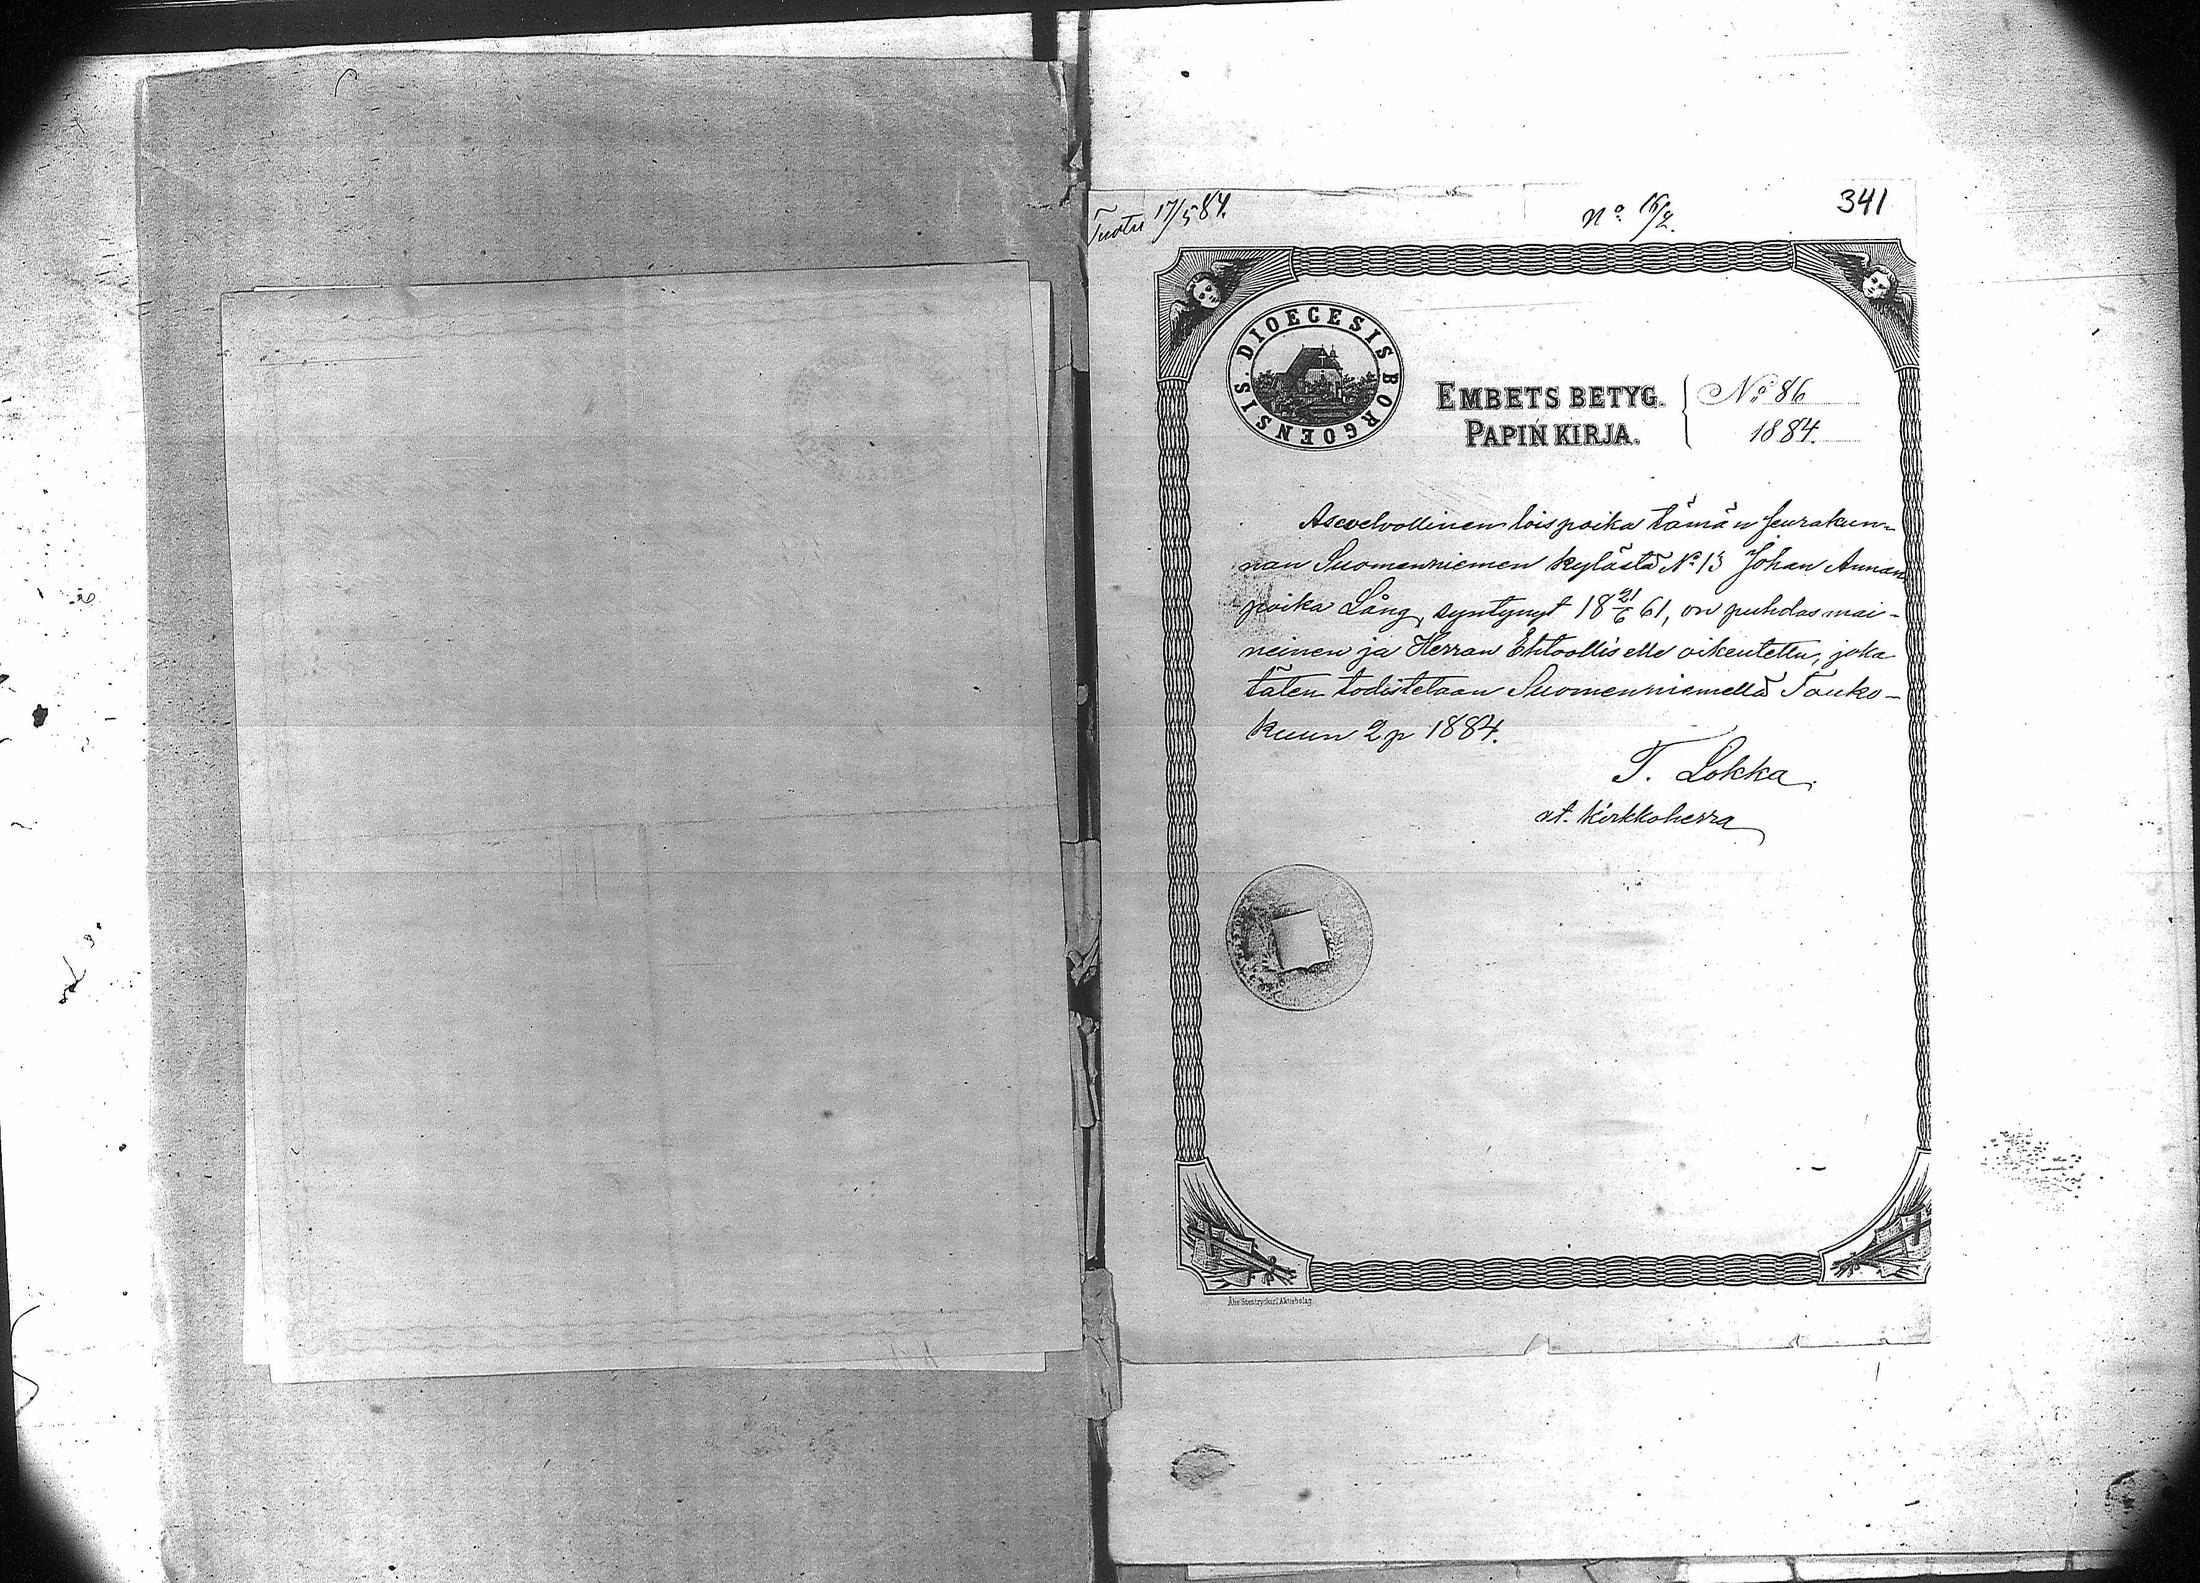 Tuotu 17/5 84.
No 16/2.
341
DIOECESIS BORGOENSIS.
EMBETS BETYG.
PAPIN KIRJA.
No 86
1884.
Asevelvollinen loispoika tämän seurakun-
nan Suomenniemen kylästä No 13 Johan Annan
poika Lång, syntynyt 18 21/6 61, on puhdasmai-
neinen ja Herran Ehtoolliselle oikeutettu, joka
täten todistetaan Suomenniemellä Touko-
kuun 2 p 1884.
T. Lokka
vt. Kirkkoherra
Åbo Stentryckeri Aktiebolag.